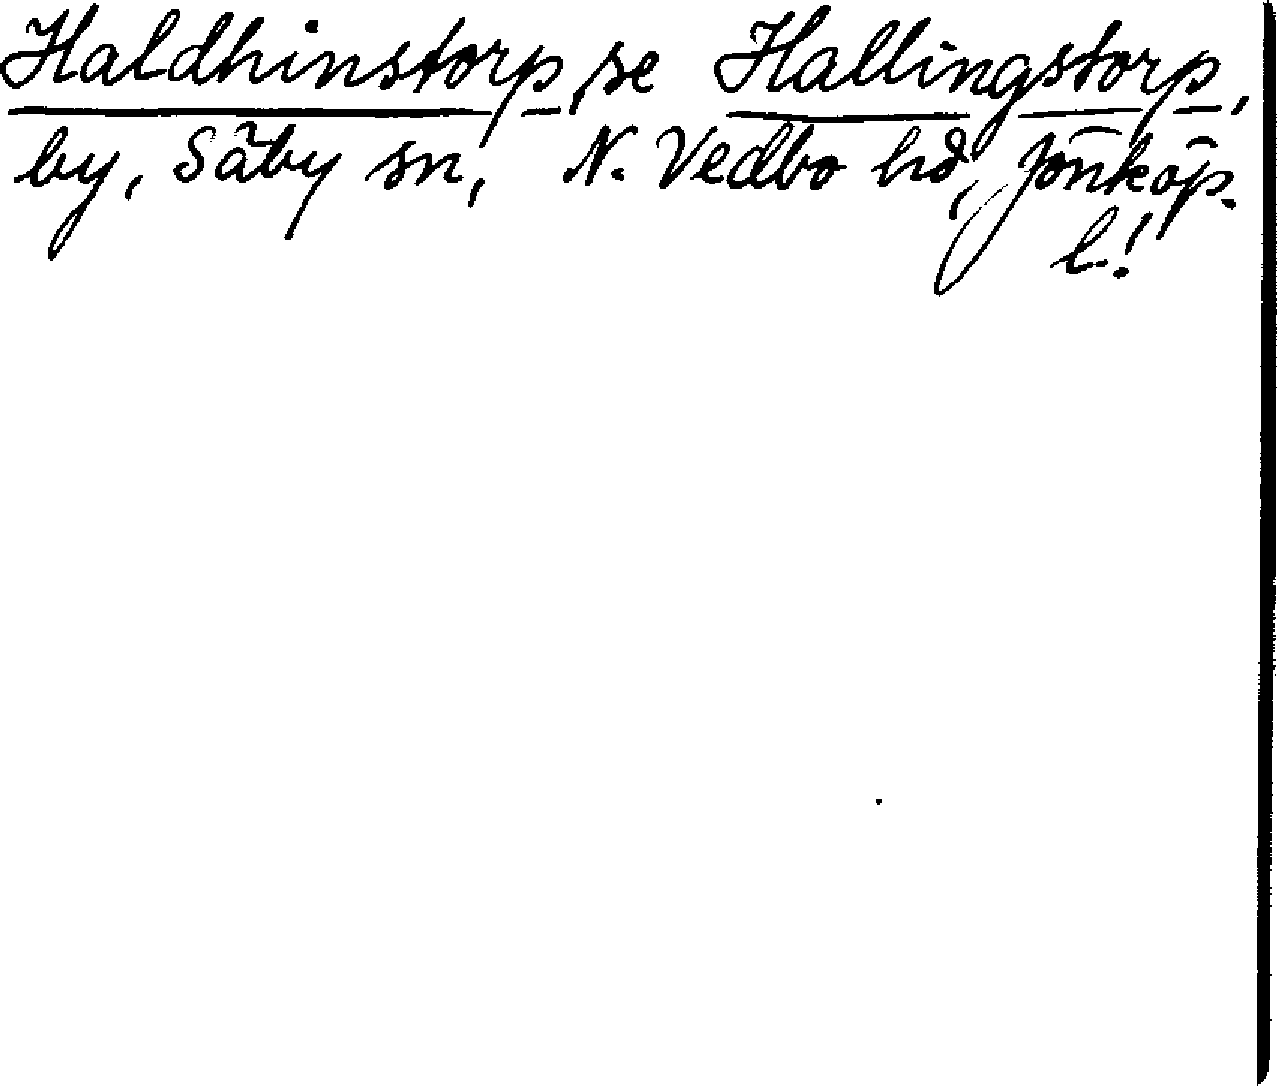 Haldhinstorp, se Hallingstorp,
by, Säby sn, N. Vedbo hd, Jönköp.
l!